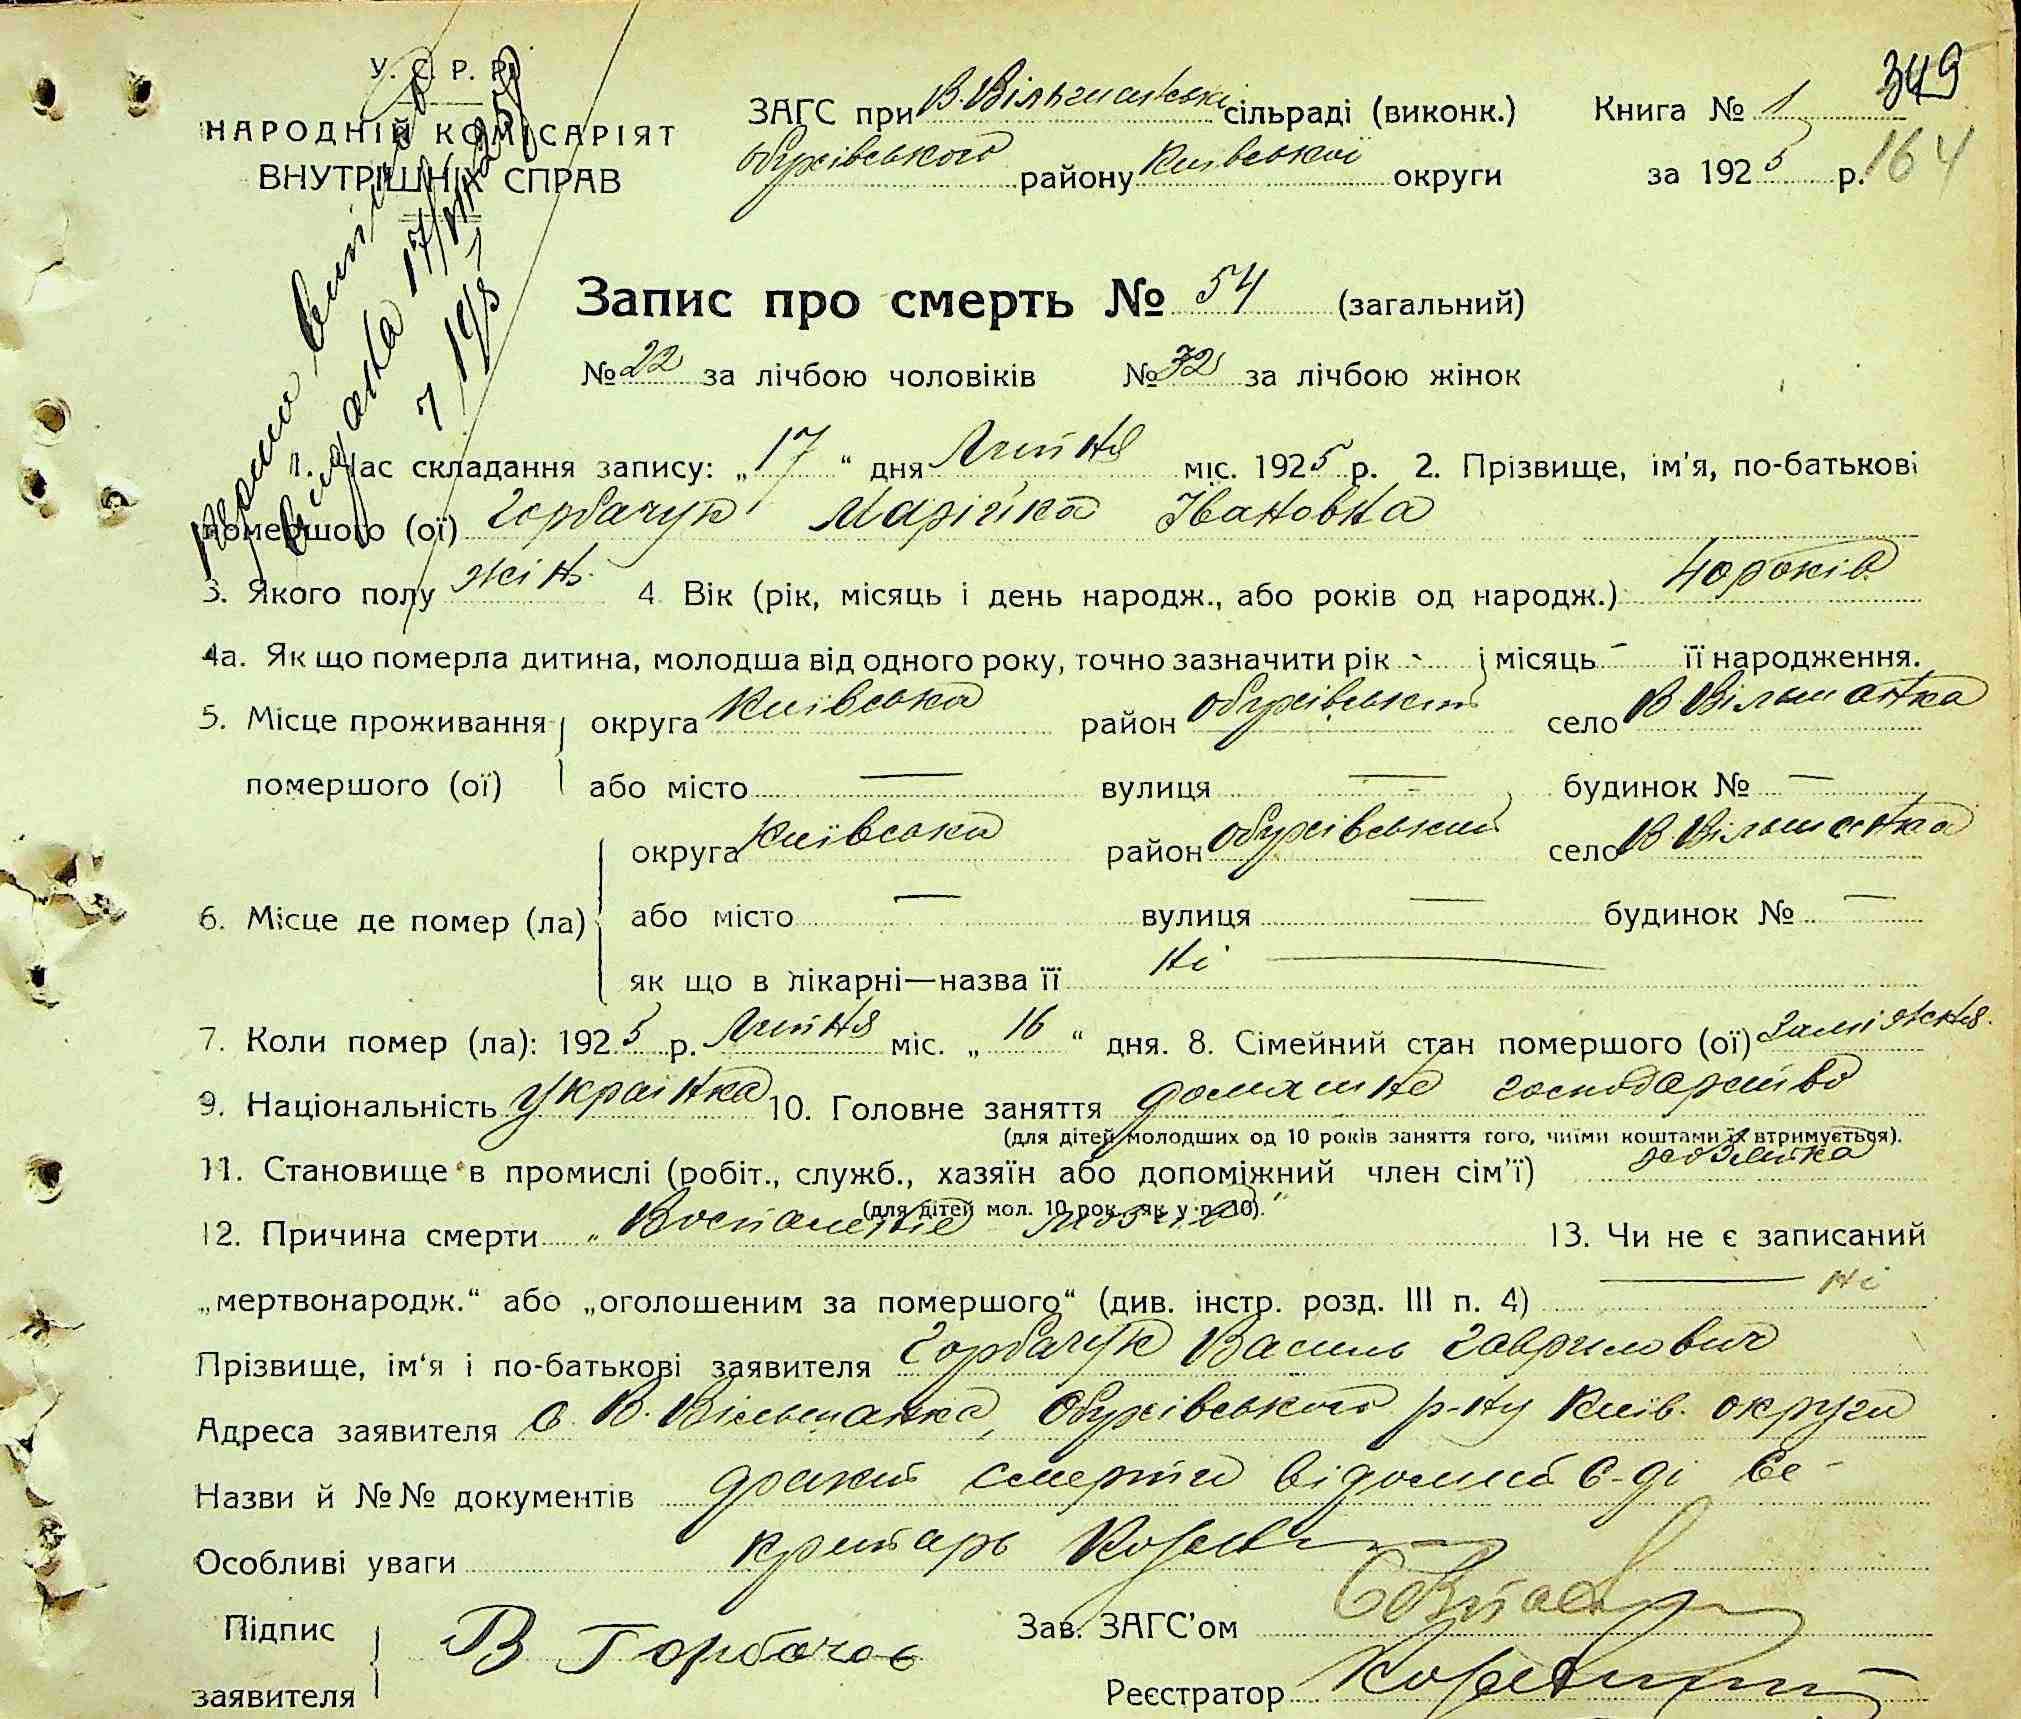 У. С. Р. Р.
НАРОДНІЙ КОМІСАРІЯТ
ВНУТРІШНІХ СПРАВ
ЗАГС при В. Вільшанські сільраді (виконк.) Книга № 1 349
обухівського району Київської округи за 1925 р. 164
17/VII 25 р.
Запис про смерть № 54 (загальний)
№ 22 за лічбою чоловіків № 32 за лічбою жінок
1. Час складання запису: „17“ дня Липня міс. 1925 р. 2. Прізвище, ім'я, по-батькові
помершого (ої) Горбачук Марійка Івановна
3. Якого полу жін. 4 Вік (рік, місяць і день народж., або років од народж.) 40 років
4а. Як що померла дитина, молодша від одного року, точно зазначити рік - і місяць - її народження.
5. Місце проживання округа Київська район обухівський село В Вільшанка
помершого (ої) або місто — вулиця — будинок № —
округа Київська район обухівський село В. Вільшанка
6. Місце де помер (ла) або місто — вулиця — будинок № —
як що в лікарні—назва її Ні —
7. Коли помер (ла): 1925 р. Липня міс. „16“ дня. 8. Сімейний стан помершого (ої) Заміжня.
9. Національність Украінка 10. Головне заняття домашнє господарство
(для дітей молодших од 10 років заняття того, чиїми коштами їх втримується).
11. Становище в промислі (робіт., служб., хазяїн або допоміжний член сім'ї)
(для дітей мол. 10 рок., як у п. 10).
12. Причина смерти „Воспаленіе мозга“ 13. Чи не є записаний
„мертвонародж.“ або „оголошеним за помершого“ (див. інстр. розд. III п. 4) — Ні
Прізвище, ім'я і по-батькові заявителя Горбачук Василь Гаврилович
Адреса заявителя с. В. Вільшанка, Обухівського р-ну Київ. округи
Назви й №№ документів факт смерти відомий с-ді Се-
Особливі уваги кретарь
Підпис В Горбачов Зав. ЗАГС'ом
заявителя Реєстратор